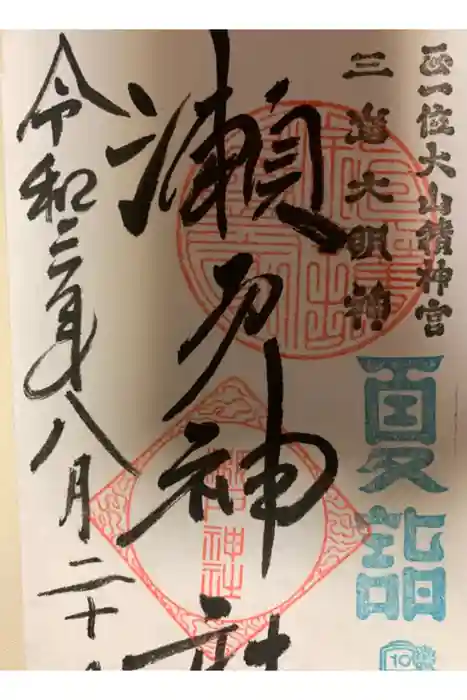 正一位大山積神宮
三島大明神
瀬戸神社
令和三年八月二十
夏詣
10
瀬戸神社